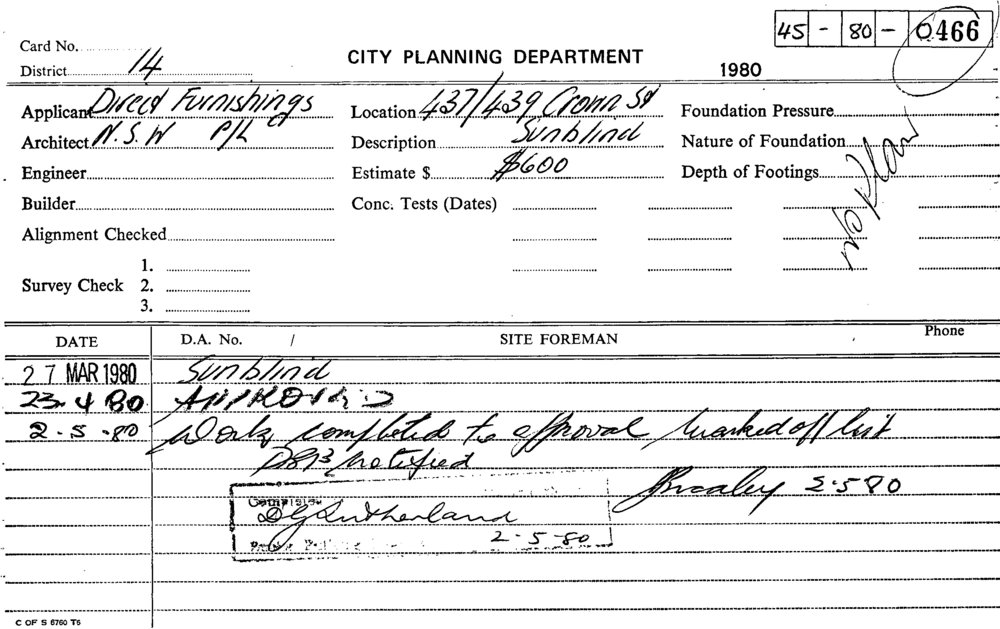 45 - 80 - 0466
Card No.
District 14
CITY PLANNING DEPARTMENT
1980
Applicant Direct Furnishings
Location 437/439 Crown St
Foundation Pressure
Architect N.S.W P/L
Description Sunblind
Nature of Foundation
Engineer
Estimate $ $600
Depth of Footings
Builder
Conc. Tests (Dates)
Alignment Checked
Survey Check
1.
2.
3.
DATE D.A. No. / SITE FOREMAN Phone
27 MAR 1980 Sunblind
23.4 80 APPROVED
2.5.80 Work completed to approval marked off list
notified
2.5.80
Completed
D Sutherland
2.5.80
C OF S 6760 T5